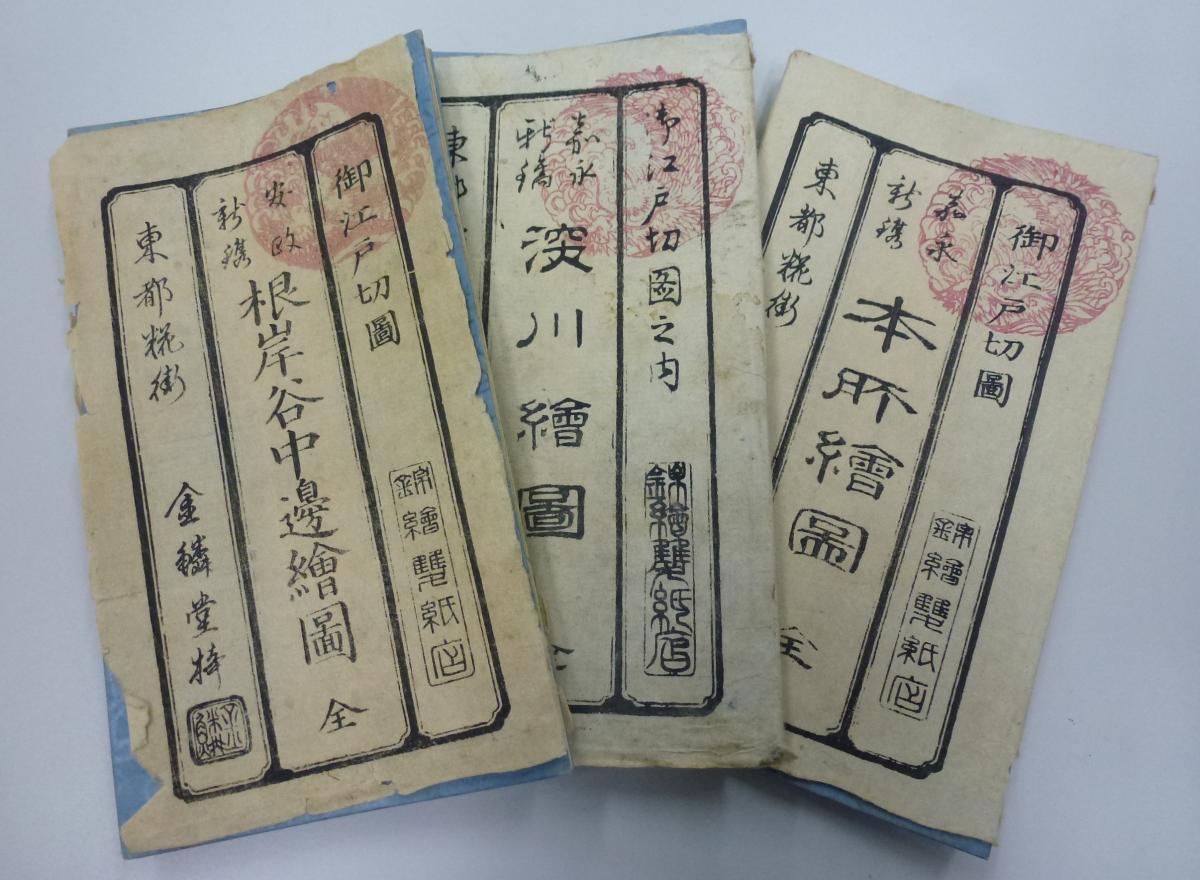 御江戸切圖
錦繪雙紙店
安政
新鐫
根岸谷中邊繪圖 全
東都糀街 金鱗堂梓
御江戸切圖之内
錦繪雙紙店
嘉永
新鐫
深川繪圖
東都
御江戸切圖
錦繪雙紙店
嘉永
新鐫
本所繪圖 全
東都糀街